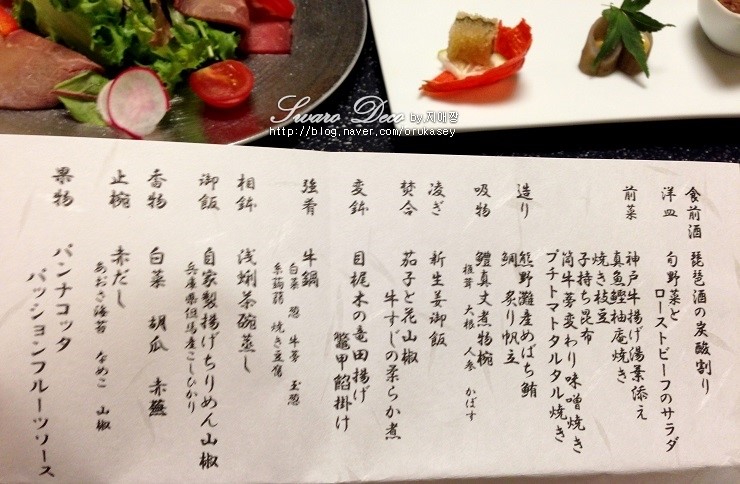 Swaro Deco by.지애짱
http://blog.naver.com/orukasey
食前酒 琵琶酒の炭酸割り
洋皿 旬野菜と
ローストビーフのサラダ
前菜 神戸牛揚げ湯葉添え
真魚鰹柚庵焼き
焼き枝豆
子持ち昆布
筒牛蒡変わり味噌焼き
プチトマトタルタル焼き
造り 熊野灘産めばち鮪
鯛 炙り帆立
吸物 鱧真丈煮物椀
椎茸 大根 人参 かぼす
凌ぎ 新生姜御飯
焚合 茄子と花山椒
牛すじの柔らか煮
変鉢 目梶木の竜田揚げ
鼈甲餡掛け
強肴 牛鍋
白菜 葱 牛蒡 玉葱
糸蒟蒻 焼き豆腐
相鉢 浅蜊茶碗蒸し
御飯 自家製揚げちりめん山椒
兵庫県但馬産こしひかり
香物 白菜 胡瓜 赤蕪
止椀 赤だし
あおさ海苔 なめこ 山椒
果物 パンナコッタ
パッションフルーツソース